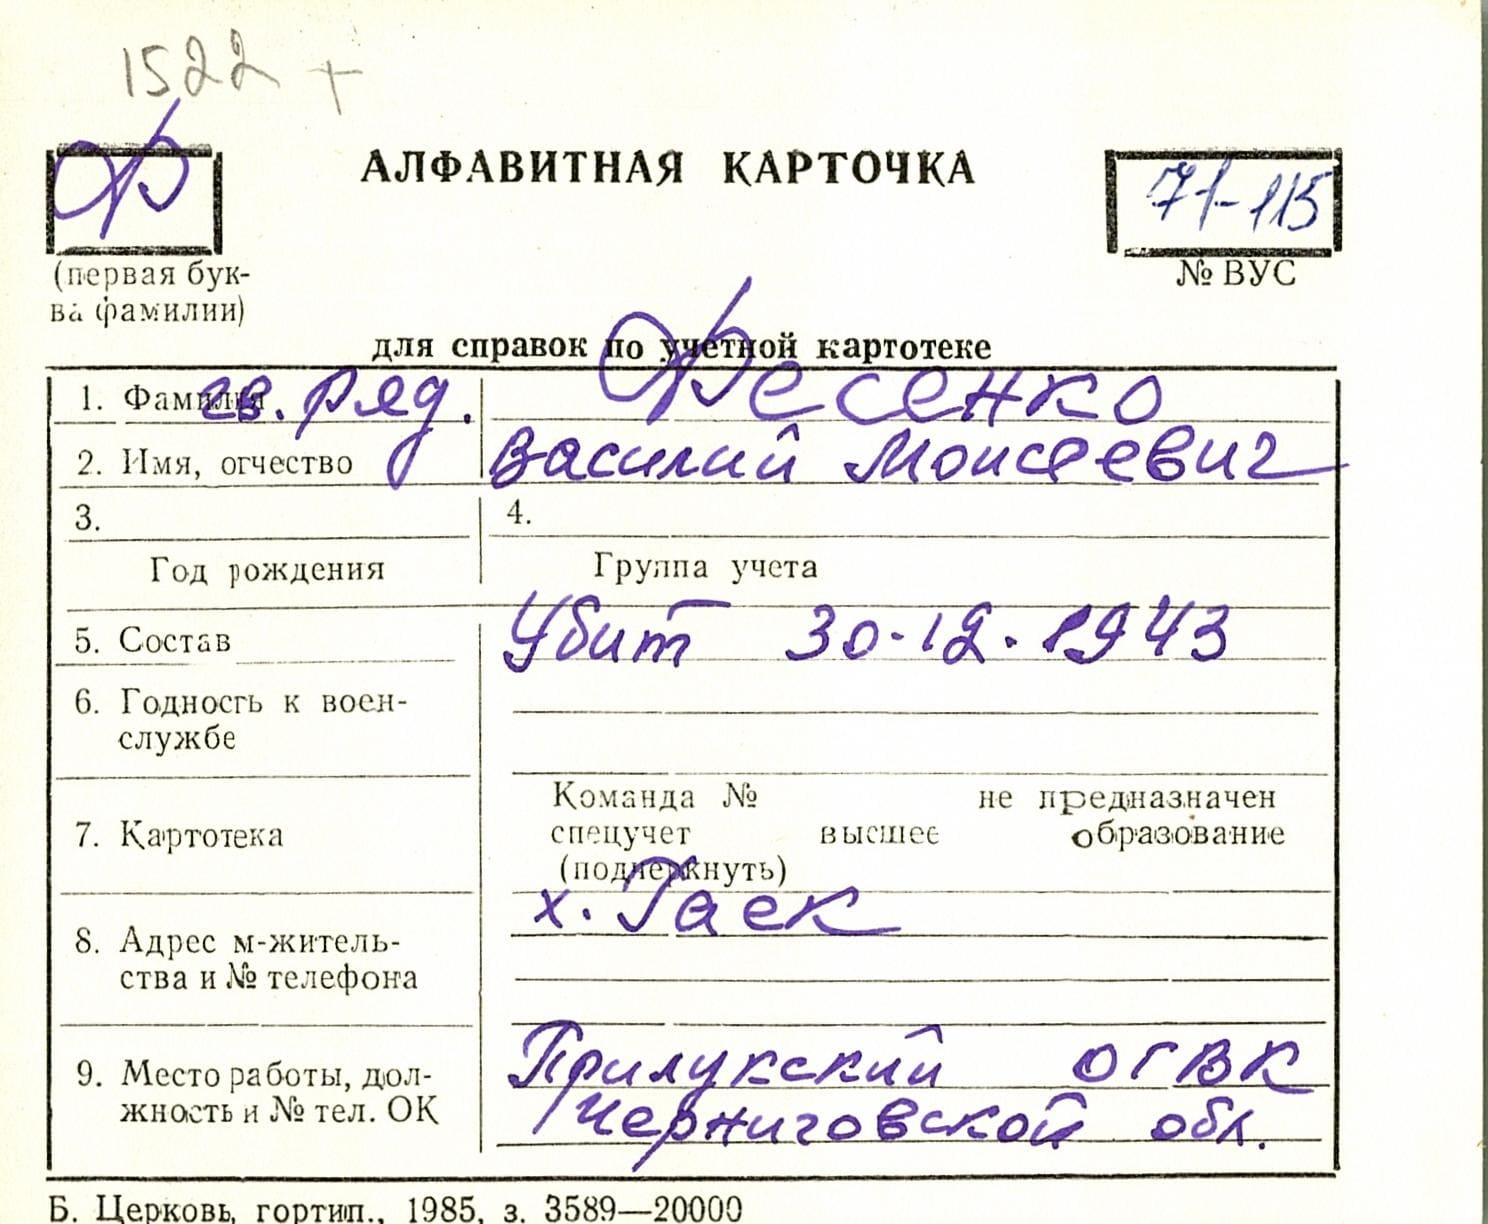 1522 +
Ф
АЛФАВИТНАЯ КАРТОЧКА
71-115
(первая бук-
ва фамилии)
№ ВУС
для справок по учетной картотеке
1. Фамилия гв. ряд. Фесенко
2. Имя, огчество Василий Моисеевич
3. 4.
Год рождения Группа учета
5. Состав Убит 30.12.1943
6. Годность к воен-
службе
Команда № не предназначен
7. Картотека спецучет высшее образование
(подчеркнуть)
х. Гаек
8. Адрес м-житель-
ства и № телефона
9. Место работы, дол- Прилукский ОГВК
жность и № тел. ОК Черниговской обл.
Б. Церковь, гортип., 1985, з. 3589—20000